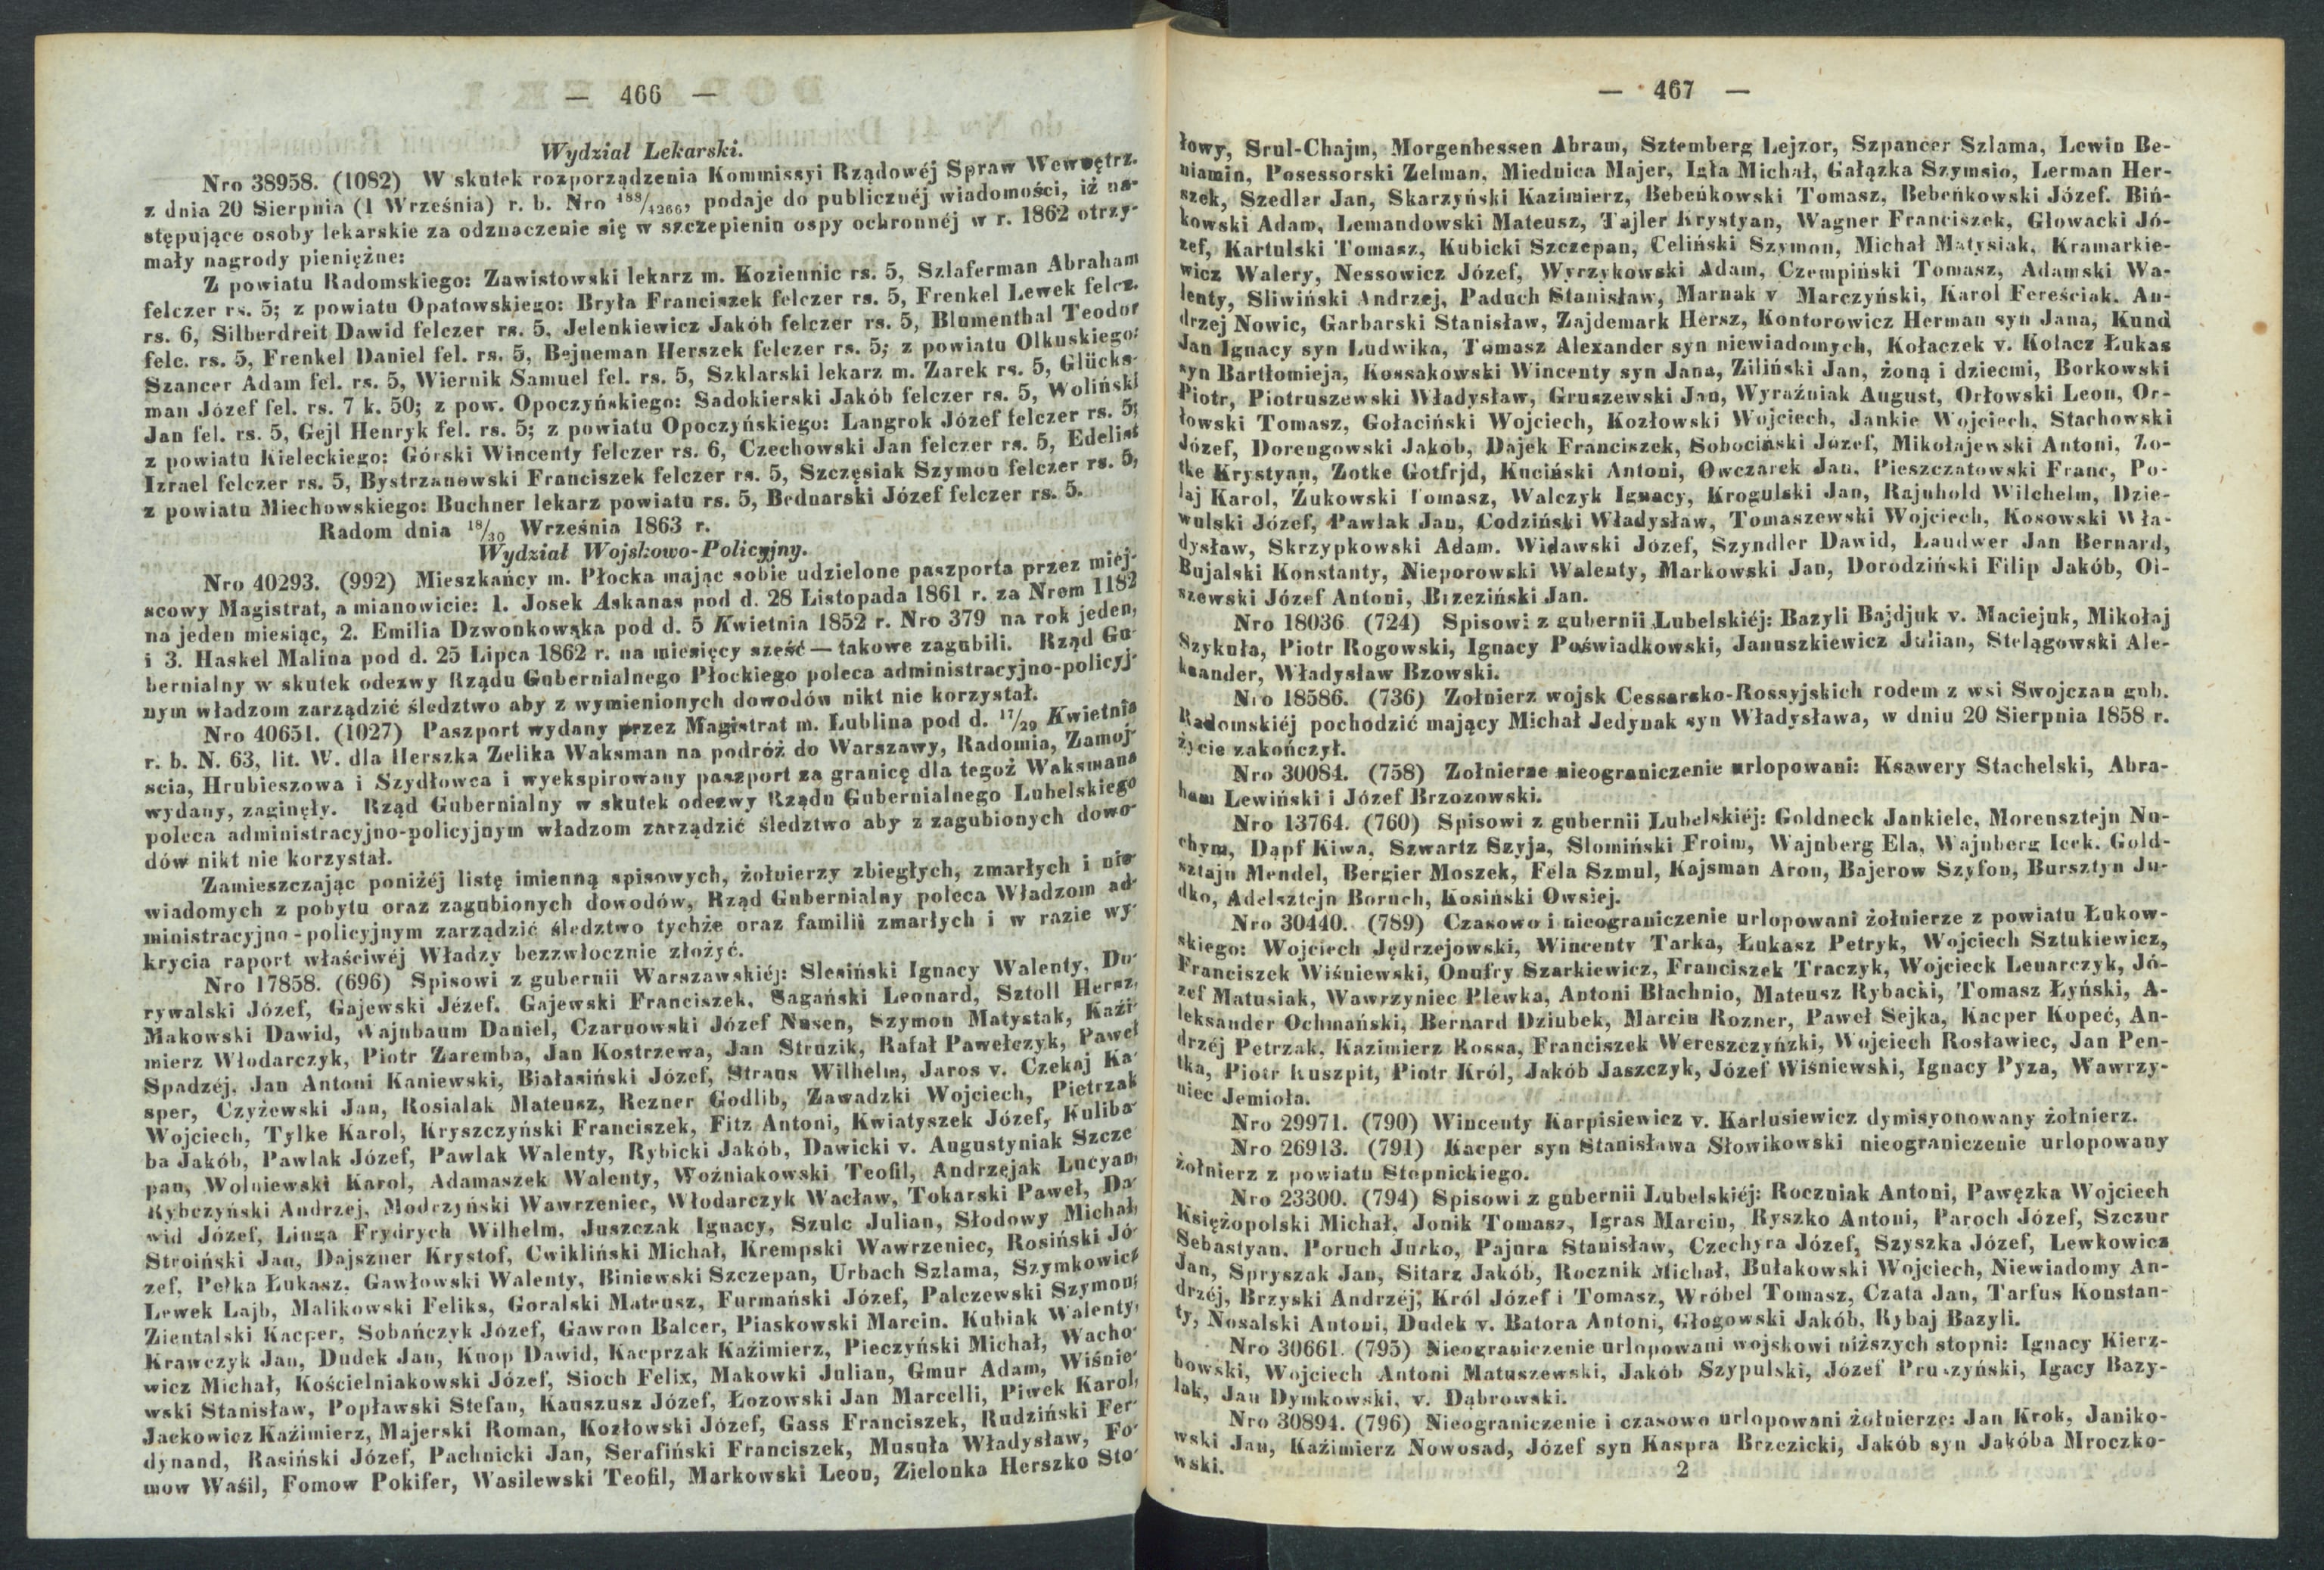 — 466 —
Wydział Lekarski.
Nro 38958. (1082) W skutek rozporządzenia Kommissyi Rządowéj Spraw Wewnętrz.
z dnia 20 Sierpnia (1 Września) r. b. Nro 188/4266, podaje do publicznéj wiadomości, iż na-
stępujące osoby lekarskie za odznaczenie się w szczepieniu ospy ochronnéj w r. 1862 otrzy-
mały nagrody pieniężne:
Z powiatu Radomskiego: Zawistowski lekarz m. Koziennic rs. 5, Szlaferman Abraham
felczer rs. 5; z powiatu Opatowskiego: Bryła Franciszek felczer rs. 5, Frenkel Lewek felcz.
rs. 6, Silberdreit Dawid felczer rs. 5, Jelenkiewicz Jakób felczer rs. 5, Blumenthal Teodor
felc. rs. 5, Frenkel Daniel fel. rs. 5, Bejneman Herszek felczer rs. 5; z powiatu Olkuskiego:
Szancer Adam fel. rs. 5, Wiernik Samuel fel. rs. 5, Szklarski lekarz m. Zarek rs. 5, Glücks-
man Józef fel. rs. 7 k. 50; z pow. Opoczyńskiego: Sadokierski Jakób felczer rs. 5, Woliński
Jan fel. rs. 5, Gejl Henryk fel. rs. 5; z powiatu Opoczyńskiego: Langrok Józef felczer rs. 5;
z powiatu Kieleckiego: Górski Wincenty felczer rs. 6, Czechowski Jan felczer rs. 5, Edelist
Izrael felczer rs. 5, Bystrzanowski Franciszek felczer rs. 5, Szczęsiak Szymon felczer rs. 5,
z powiatu Miechowskiego: Buchner lekarz powiatu rs. 5, Bednarski Józef felczer rs. 5.
Radom dnia 18/30 Września 1863 r.
Wydział Wojskowo-Policyjny.
Nro 40293. (992) Mieszkańcy m. Płocka mając sobie udzielone paszporta przez miej-
scowy Magistrat, a mianowicie: 1. Josek Askanas pod d. 28 Listopada 1861 r. za Nrem 1182
na jeden miesiąc, 2. Emilia Dzwonkowska pod d. 5 Kwietnia 1852 r. Nro 379 na rok jeden,
i 3. Haskel Malina pod d. 25 Lipca 1862 r. na miesięcy sześć — takowe zagubili. Rząd Gu-
bernialny w skutek odezwy Rządu Gubernialnego Płockiego poleca administracyjno-policyj-
nym władzom zarządzić śledztwo aby z wymienionych dowodów nikt nie korzystał.
Nro 40651. (1027) Paszport wydany przez Magistrat m. Lublina pod d. 17/29 Kwietnia
r. b. N. 63, lit. W. dla Herszka Zelika Waksman na podróż do Warszawy, Radomia, Zamoj-
scia, Hrubieszowa i Szydłowca i wyekspirowany paszport za granicę dla tegoż Waksmana
wydany, zaginęły. Rząd Gubernialny w skutek odezwy Rządu Gubernialnego Lubelskiego
poleca administracyjno-policyjnym władzom zarządzić śledztwo aby z zagubionych dowo-
dów nikt nie korzystał.
Zamieszczając poniżéj listę imienną spisowych, żołnierzy zbiegłych, zmarłych i nie-
wiadomych z pobytu oraz zagubionych dowodów, Rząd Gubernialny poleca Władzom ad-
ministracyjno-policyjnym zarządzić śledztwo tychże oraz familii zmarłych i w razie wy-
krycia raport właściwéj Władzy bezzwłocznie złożyć.
Nro 17858. (696) Spisowi z gubernii Warszawskiéj: Slesiński Ignacy Walenty, Do-
rywalski Józef, Gajewski Jézef. Gajewski Franciszek, Sagański Leonard, Sztoll Hersz,
Makowski Dawid, Wajnbaum Daniel, Czarnowski Józef Nusen, Szymon Matystak, Kazi-
mierz Włodarczyk, Piotr Zaremba, Jan Kostrzewa, Jan Struzik, Rafał Pawełczyk, Paweł
Spadzéj, Jan Antoni Kaniewski, Białasiński Józef, Straus Wilhelm, Jaros v. Czekaj Ka-
sper, Czyżewski Jan, Rosialak Mateusz, Rezner Godlib, Zawadzki Wojciech, Pietrzak
Wojciech, Tylke Karol, Kryszczyński Franciszek, Fitz Antoni, Kwiatyszek Józef, Kuliba-
ba Jakób, Pawlak Józef, Pawlak Walenty, Rybicki Jakób, Dawicki v. Augustyniak Szcze-
pan, Wolniewski Karol, Adamaszek Walenty, Woźniakowski Teofil, Andrzejak Lucyan,
Rybczyński Andrzej, Modrzyński Wawrzeniec, Włodarczyk Wacław, Tokarski Paweł, Da-
wid Józef, Linga Frydrych Wilhelm, Juszczak Ignacy, Szulc Julian, Słodowy Michał,
Stroiński Jan, Dajszner Krystof, Cwikliński Michał, Krempski Wawrzeniec, Rosiński Jó-
zef, Pełka Łukasz, Gawłowski Walenty, Biniewski Szczepan, Urbach Szlama, Szymkowicz
Lewek Lajb, Malikowski Feliks, Goralski Mateusz, Furmański Józef, Palczewski Szymon,
Zientalski Kacper, Sobańczyk Józef, Gawron Balcer, Piaskowski Marcin. Kubiak Walenty,
Krawczyk Jan, Dudek Jan, Knop Dawid, Kacprzak Kaźimierz, Pieczyński Michał, Wacho-
wicz Michał, Kościelniakowski Józef, Sioch Felix, Makowki Julian, Gmur Adam, Wiśnie-
wski Stanisław, Popławski Stefan, Kauszusz Józef, Łozowski Jan Marcelli, Piwek Karol,
Jackowicz Kaźimierz, Majerski Roman, Kozłowski Józef, Gass Franciszek, Rudziński Fer-
dynand, Rasiński Józef, Pachnicki Jan, Serafiński Franciszek, Musuła Władysław, Fo-
mow Waśil, Fomow Pokifer, Wasilewski Teofil, Markowski Leon, Zielonka Herszko Sto-
— 467 —
łowy, Srul-Chajm, Morgenbessen Abram, Sztemberg Lejzor, Szpancer Szlama, Lewin Be-
niamin, Posessorski Zelman, Miednica Majer, Igła Michał, Gałązka Szymsio, Lerman Her-
szek, Szedler Jan, Skarzyński Kazimierz, Bebeńkowski Tomasz, Bebeńkowski Józef. Biń-
kowski Adam, Lemandowski Mateusz, Tajler Krystyan, Wagner Franciszek, Głowacki Jó-
zef, Kartulski Tomasz, Kubicki Szczepan, Celiński Szymon, Michał Matysiak, Kramarkie-
wicz Walery, Nessowicz Józef, Wyrzykowski Adam, Czempiński Tomasz, Adamski Wa-
lenty, Sliwiński Andrzej, Paduch Stanisław, Marnak v Marczyński, Karol Fereściak. An-
drzej Nowic, Garbarski Stanisław, Zajdemark Hersz, Kontorowicz Herman syn Jana, Kund
Jan Ignacy syn Ludwika, Tomasz Alexander syn niewiadomych, Kołaczek v. Kołacz Łukas
syn Bartłomieja, Kossakowski Wincenty syn Jana, Ziliński Jan, żoną i dziecmi, Borkowski
Piotr, Piotruszewski Władysław, Gruszewski Jan, Wyraźniak August, Orłowski Leon, Or-
łowski Tomasz, Gołaciński Wojciech, Kozłowski Wojciech, Jankie Wojciech, Stachowski
Józef, Dorengowski Jakób, Dajek Franciszek, Sobociński Józef, Mikołajewski Antoni, Zo-
tke Krystyan, Zotke Gotfrjd, Kuciński Antoni, Owczarek Jan, Pieszczatowski Franc, Po-
laj Karol, Żukowski Tomasz, Walczyk Ignacy, Krogulski Jan, Rajnhold Wilchelm, Dzie-
wulski Józef, Pawlak Jan, Codziński Władysław, Tomaszewski Wojciech, Kosowski Wła-
dysław, Skrzypkowski Adam. Widawski Józef, Szyndler Dawid, Laudwer Jan Bernard,
Bujalski Konstanty, Nieporowski Walenty, Markowski Jan, Dorodziński Filip Jakób, Oi-
szewski Józef Antoni, Brzeziński Jan.
Nro 18036 (724) Spisowi z gubernii Lubelskiéj: Bazyli Bajdjuk v. Maciejuk, Mikołaj
Szykuła, Piotr Rogowski, Ignacy Poświadkowski, Januszkiewicz Julian, Stelągowski Ale-
ksander, Władysław Bzowski.
Nro 18586. (736) Zołnierz wojsk Cessarsko-Rossyjskich rodem z wsi Swojczan gub.
Radomskiéj pochodzić mający Michał Jedynak syn Władysława, w dniu 20 Sierpnia 1858 r.
życie zakończył.
Nro 30084. (758) Zołnierze nieograniczenie urlopowani: Ksawery Stachelski, Abra-
ham Lewiński i Józef Brzozowski.
Nro 13764. (760) Spisowi z gubernii Lubelskiéj: Goldneck Jankiele, Morensztejn Nu-
chym, Dąpf Kiwa, Szwartz Szyja, Słomiński Froim, Wajnberg Ela, Wajnberg Icek. Gold-
sztajn Mendel, Bergier Moszek, Fela Szmul, Kajsman Aron, Bajerow Szyfon, Bursztyn Ju-
dko, Adelsztejn Boruch, Kosiński Owsiej.
Nro 30440. (789) Czasowo i nieograniczenie urlopowani żołnierze z powiatu Łukow-
skiego: Wojciech Jędrzejowski, Wincenty Tarka, Łukasz Petryk, Wojciech Sztukiewicz,
Franciszek Wiśniewski, Onufry Szarkiewicz, Franciszek Traczyk, Wojcieck Lenarczyk, Jó-
zef Matusiak, Wawrzyniec Plewka, Antoni Błachnio, Mateusz Rybacki, Tomasz Łyński, A-
leksander Ochmański, Bernard Dziubek, Marcin Rozner, Paweł Sejka, Kacper Kopeć, An-
drzéj Petrzak, Kazimierz Rossa, Franciszek Wereszczyńzki, Wojciech Rosławiec, Jan Pen-
tka, Piotr Kuszpit, Piotr Król, Jakób Jaszczyk, Józef Wiśniewski, Ignacy Pyza, Wawrzy-
niec Jemioła.
Nro 29971. (790) Wincenty Karpisiewicz v. Karlusiewicz dymisyonowany żołnierz.
Nro 26913. (791) Kacper syn Stanisława Słowikowski nieograniczenie urlopowany
żołnierz z powiatu Stopnickiego.
Nro 23300. (794) Spisowi z gubernii Lubelskiéj: Roczniak Antoni, Pawęzka Wojciech
Księżopolski Michał, Jonik Tomasz, Igras Marcin, Ryszko Antoni, Paroch Józef, Szczur
Sebastyan. Poruch Jurko, Pajura Stanisław, Czechyra Józef, Szyszka Józef, Lewkowicz
Jan, Spryszak Jan, Sitarz Jakób, Rocznik Michał, Bułakowski Wojciech, Niewiadomy An-
drzéj, Brzyski Andrzéj, Król Józef i Tomasz, Wróbel Tomasz, Czata Jan, Tarfus Konstan-
ty, Nosalski Antoni, Dudek v. Batora Antoni, Głogowski Jakób, Rybaj Bazyli.
Nro 30661. (795) Nieograniczenie urlopowani wojskowi niższych stopni: Ignacy Kierz-
bowski, Wojciech Antoni Matuszewski, Jakób Szypulski, Józef Pruszyński, Igacy Bazy-
lak, Jan Dymkowski, v. Dąbrowski.
Nro 30894. (796) Nieograniczenie i czasowo urlopowani żołnierze: Jan Krok, Janiko-
wski Jan, Kaźimierz Nowosad, Józef syn Kaspra Brzezicki, Jakób syn Jakóba Mroczko-
wski.
2